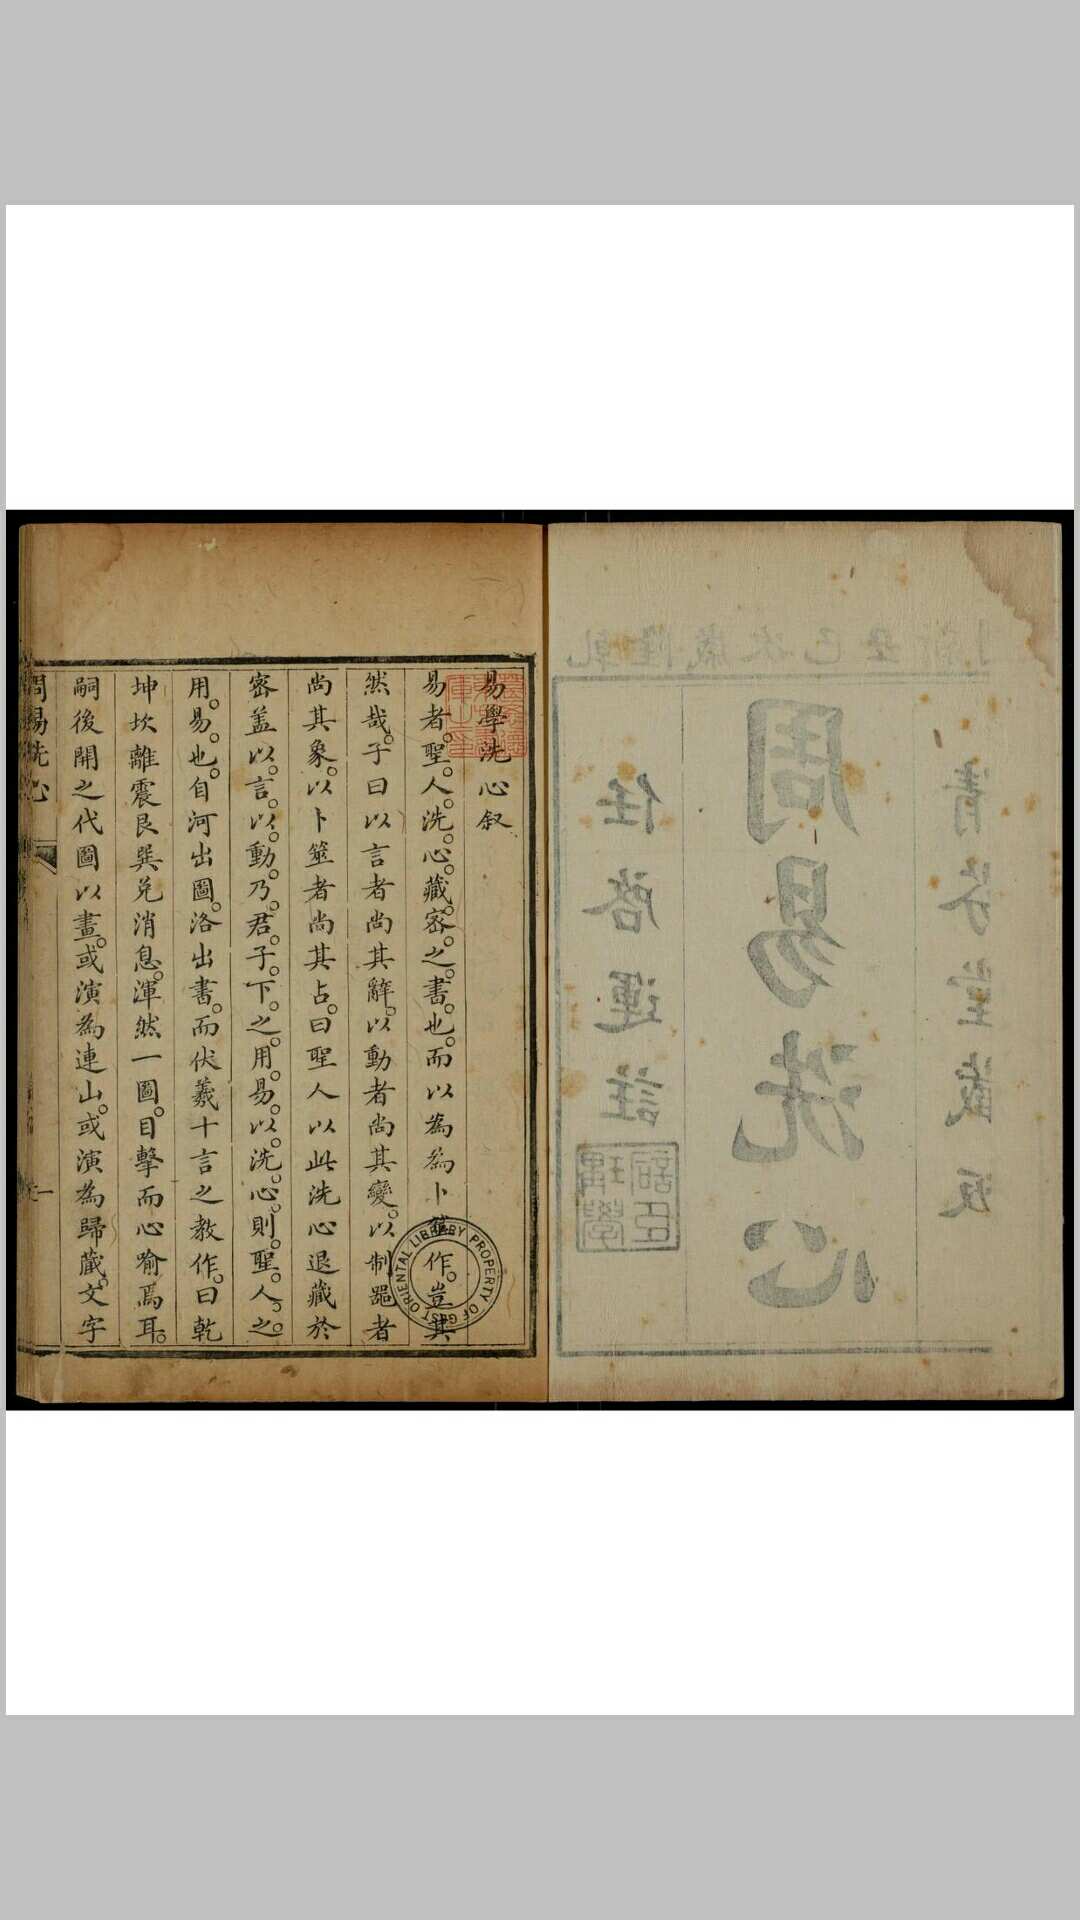 乾隆歲次己丑新
清芬堂藏板
周易洗心
任啓運註
易學洗心叙
易者聖人洗心藏密之書也而以為為卜筮作豈其
然哉子曰以言者尚其辭以動者尚其變以制器者
尚其象以卜筮者尚其占曰聖人以此洗心退藏於
密盖以言以動乃君子下之用易以洗心則聖人之
用易也自河出圖洛出書而伏羲十言之教作曰乾
坤坎離震艮巽兌消息渾然一圖目擊而心喻焉耳
嗣後開之代圖以畫或演為連山或演為歸藏文字
周易洗心
一
GEST ORIENTAL LIBRARY PROPERTY OF